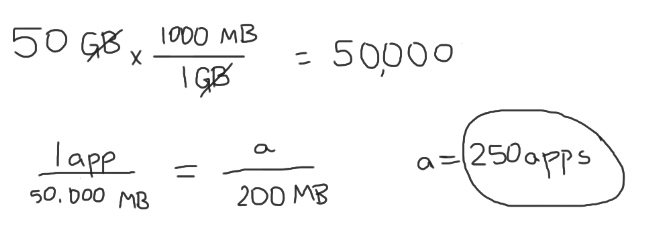 50 GB x 1000 MB / 1 GB = 50,000
1 app / 50.000 MB = a / 200 MB a = 250 apps